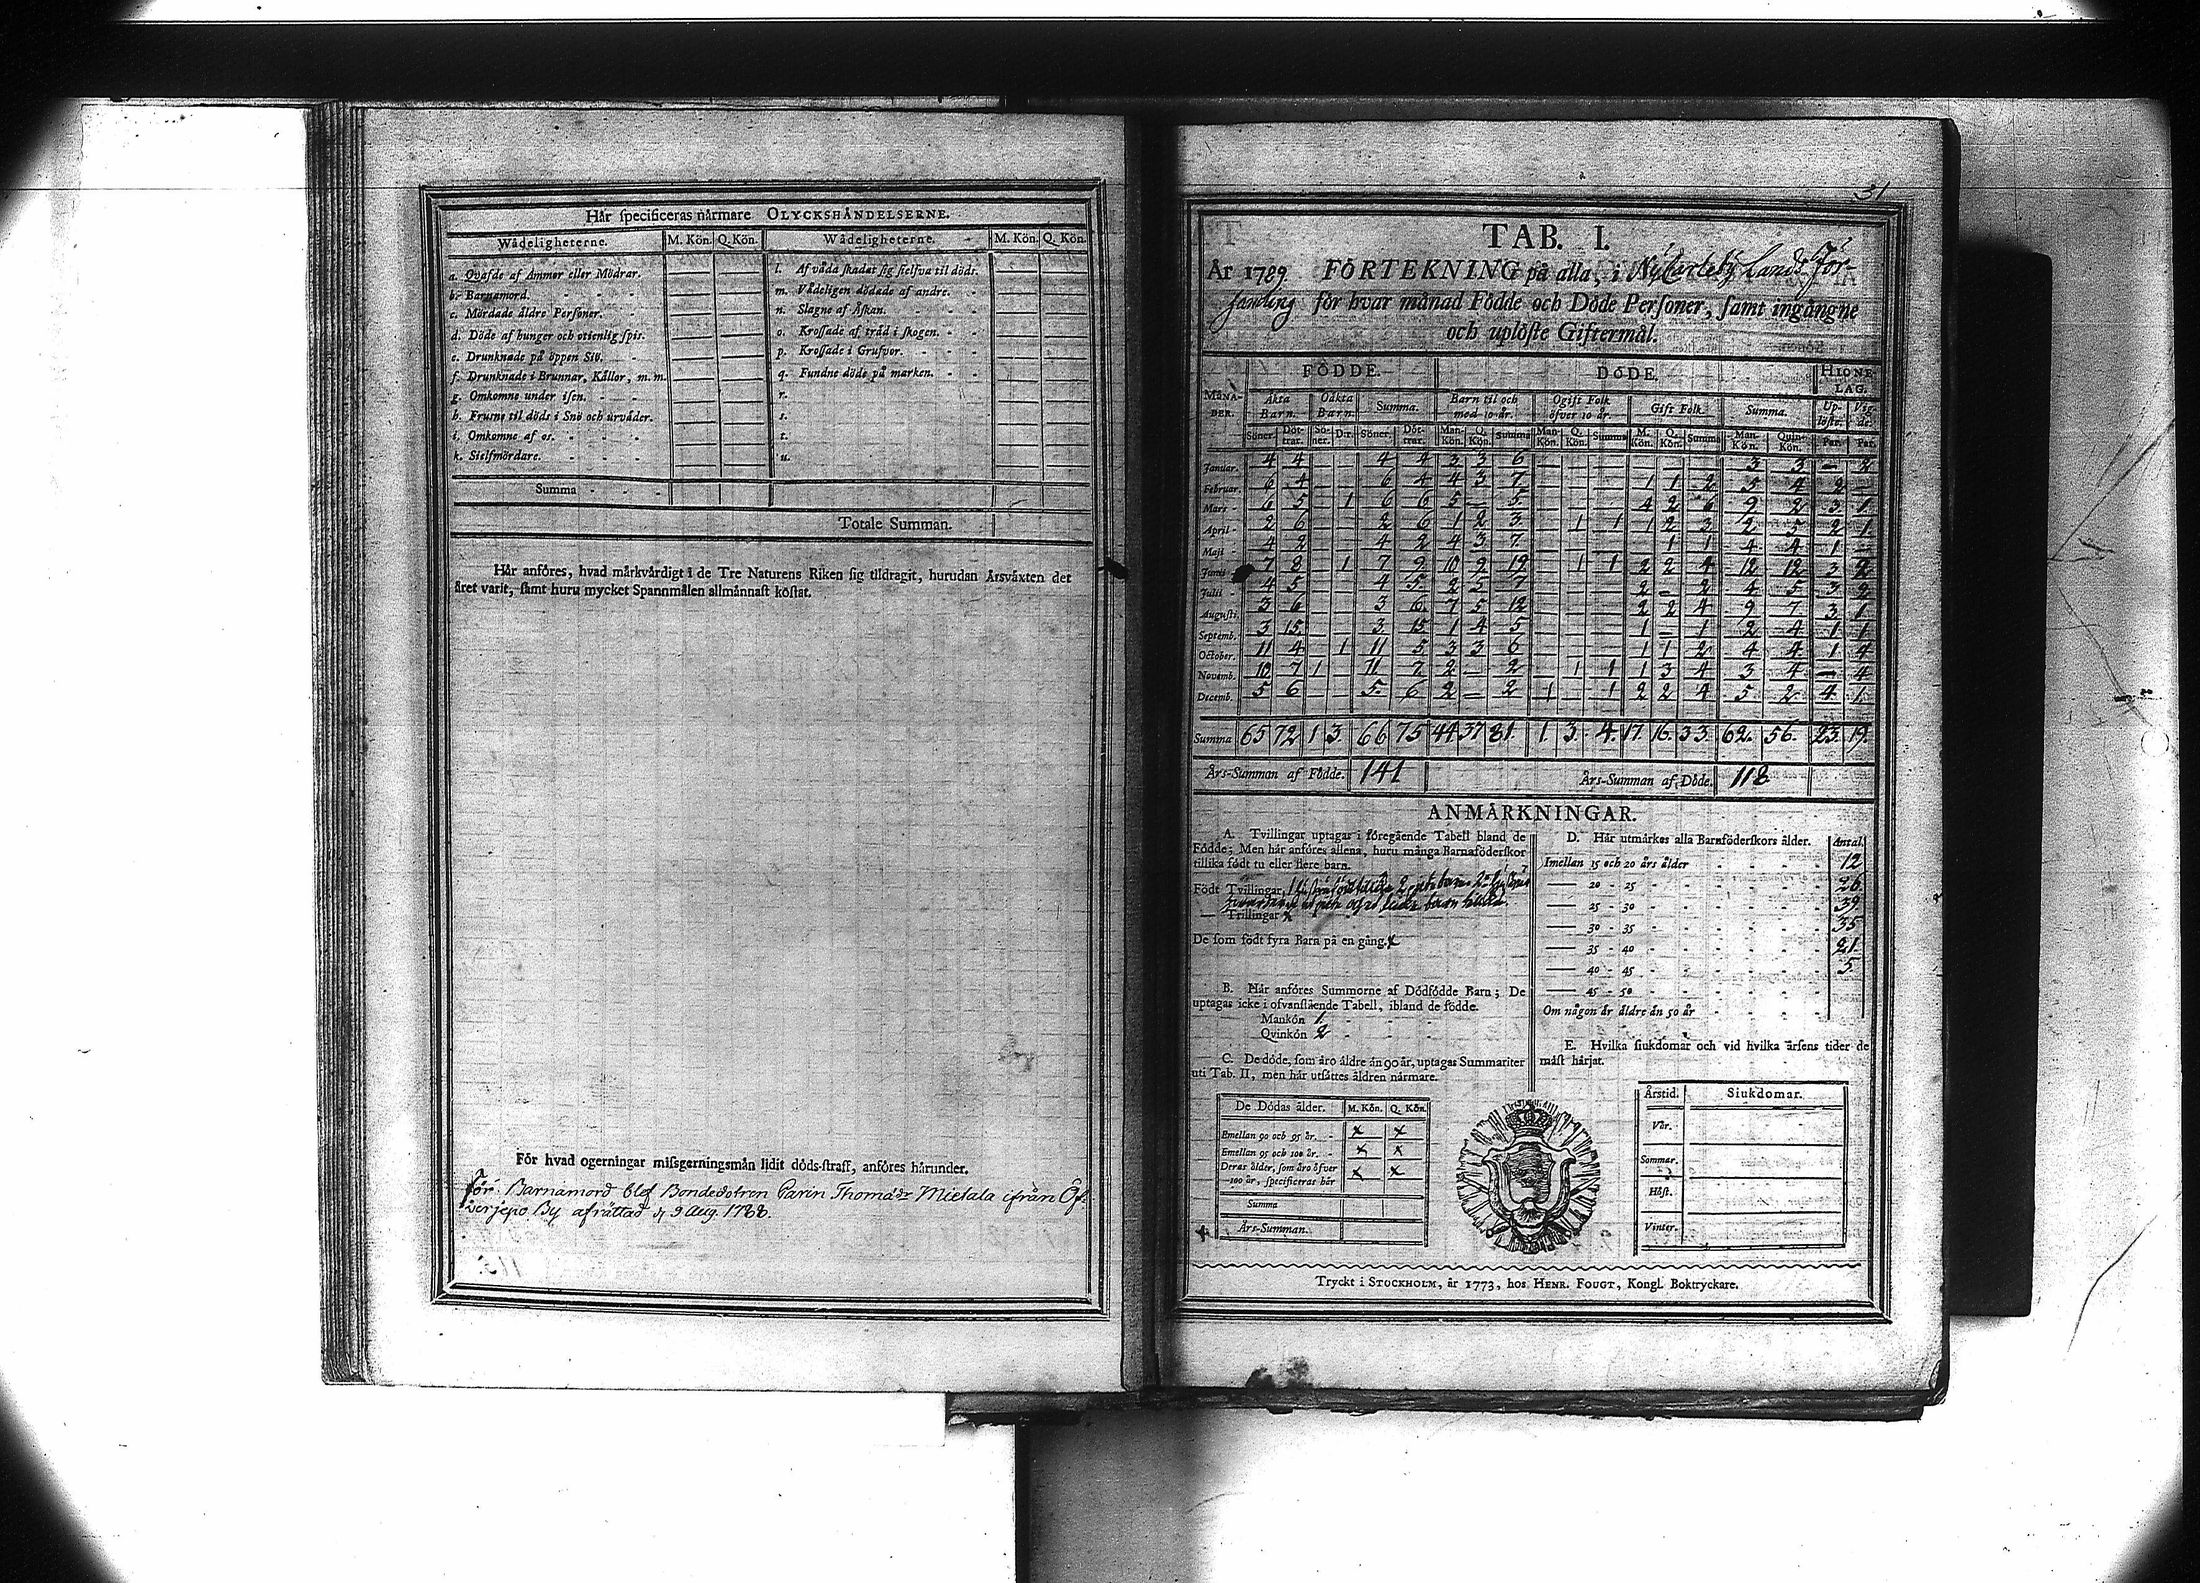 Här specificeras närmare OLYCKSHÄNDELSERNE.
Wådeligheterne. M. Kön. Q. Kön. Wådeligheterne. M. Kön. Q. Kön.
a. Qvafde af Ammor eller Mödrar. l. Af våda skadat sig sielfva til döds.
b. Barnamord. m. Vådeligen dödade af andre.
c. Mördade äldre Personer. n. Slagne af Åskan.
d. Döde af hunger och otienlig spis. o. Krossade af träd i skogen.
e. Drunknade på öppen Siö. p. Krossade i Grufvor.
f. Drunknade i Brunnar, Källor, m. m. q. Fundne döde på marken.
g. Omkomne under isen. r.
h. Frusne til döds i Snö och urväder. s.
i. Omkomne af os. t.
k. Sielfmördare. u.
Summa
Totale Summan.
Här anföres, hvad märkvärdigt i de Tre Naturens Riken sig tildragit, hurudan Årsväxten det
året varit, samt huru mycket Spannmålen allmännast kostat.
För hvad ogerningar missgerningsmän lidit döds-straff, anföres härunder.
För Barnamord blef Bondedotren Carin Thomadr Mietala ifrån Öf-
verjepo By afrättad d 9 Aug. 1788.
31
TAB. I.
År 1789 FÖRTEKNING på alla, i Nycarleby Lands För-
samling för hvar månad Födde och Döde Personer, samt ingångne
och uplöste Giftermål.
FÖDDE. DÖDE. HIONE-LAG.
MÅNA-DER. Äkta Barn. Oäkta Barn. Summa. Barn til och med 10 år. Ogift Folk öfver 10 år. Gift Folk. Summa. Up-löste. Vig-de.
Söner. Döt-trar. Sö-ner. D:r. Söner. Döt-trar. Man-Kön. Q. Kön. Summa Man-Kön. Q. Kön. Summa M. Kön. Q. Kön. Summa Man-Kön. Quin-Kön. Par. Par.
Januar. 4 4 — — 4 4 3 3 6 — — — — — — 3 3 — 2
Februar. 6 4 — — 6 4 4 3 7 — — — 1 1 2 5 4 2 —
Mars 6 5 — 1 6 6 5 — 5 — — — 4 2 6 9 2 3 1
April 2 6 — — 2 6 1 2 3 — 1 1 1 2 3 2 5 2 1
Maji 4 2 — — 4 2 4 3 7 — — — — 1 1 4 4 1 —
Junii 7 8 — 1 7 9 10 9 19 — 1 1 2 2 4 12 12 3 2
Julii 4 5 — — 4 5 2 5 7 — — — 2 — 2 4 5 3 2
Augusti. 3 6 — — 3 6 7 5 12 — — — 2 2 4 9 7 3 1
Septemb. 3 15 — — 3 15 1 4 5 — — — 1 — 1 2 4 1 1
October. 11 4 — 1 11 5 3 3 6 — — — 1 1 2 4 4 1 4
Novemb. 10 7 1 — 11 7 2 — 2 — 1 1 1 3 4 3 4 — 4
Decemb. 5 6 — — 5 6 2 — 2 1 — 1 2 2 4 5 2 4 1
Summa 65 72 1 3 66 75 44 37 81 1 3 4 17 16 33 62 56 23 19
Års-Summan af Födde. 141 Års-Summan af Döde. 118
ANMÄRKNINGAR.
A. Tvillingar uptagas i föregående Tabell bland de
Födde; Men här anföres allena, huru många Barnaföderskor
tillika födt tu eller flere barn.
Födt Tvillingar,
— Trillingar x
De som födt fyra Barn på en gång. x
B. Här anföres Summorne af Dödfödde Barn; De
uptagas icke i ofvanstående Tabell, ibland de födde.
Mankön 1.
Qvinkön 2
C. De döde, som äro äldre än 90 år, uptagas Summariter
uti Tab. II, men här utsättes åldren närmare.
De Dödas ålder. M. Kön. Q. Kön.
Emellan 90 och 95 år. x x
Emellan 95 och 100 år. x x
Deras ålder, som äro öfver x x
100 år, specificeras här
Summa
Års-Summan.
D. Här utmärkes alla Barnföderskors ålder. Antal.
Imellan 15 och 20 års ålder 12
— 20 - 25 26
— 25 - 30 39
— 30 - 35 35
— 35 - 40 21
— 40 - 45 5
— 45 - 50
Om någon är äldre än 50 år
E. Hvilka siukdomar och vid hvilka årsens tider de
mäst härjat.
Årstid. Siukdomar.
Vår.
Sommar.
Höst.
Vinter.
Tryckt i STOCKHOLM, år 1773, hos HENR. FOUGT, Kongl. Boktryckare.